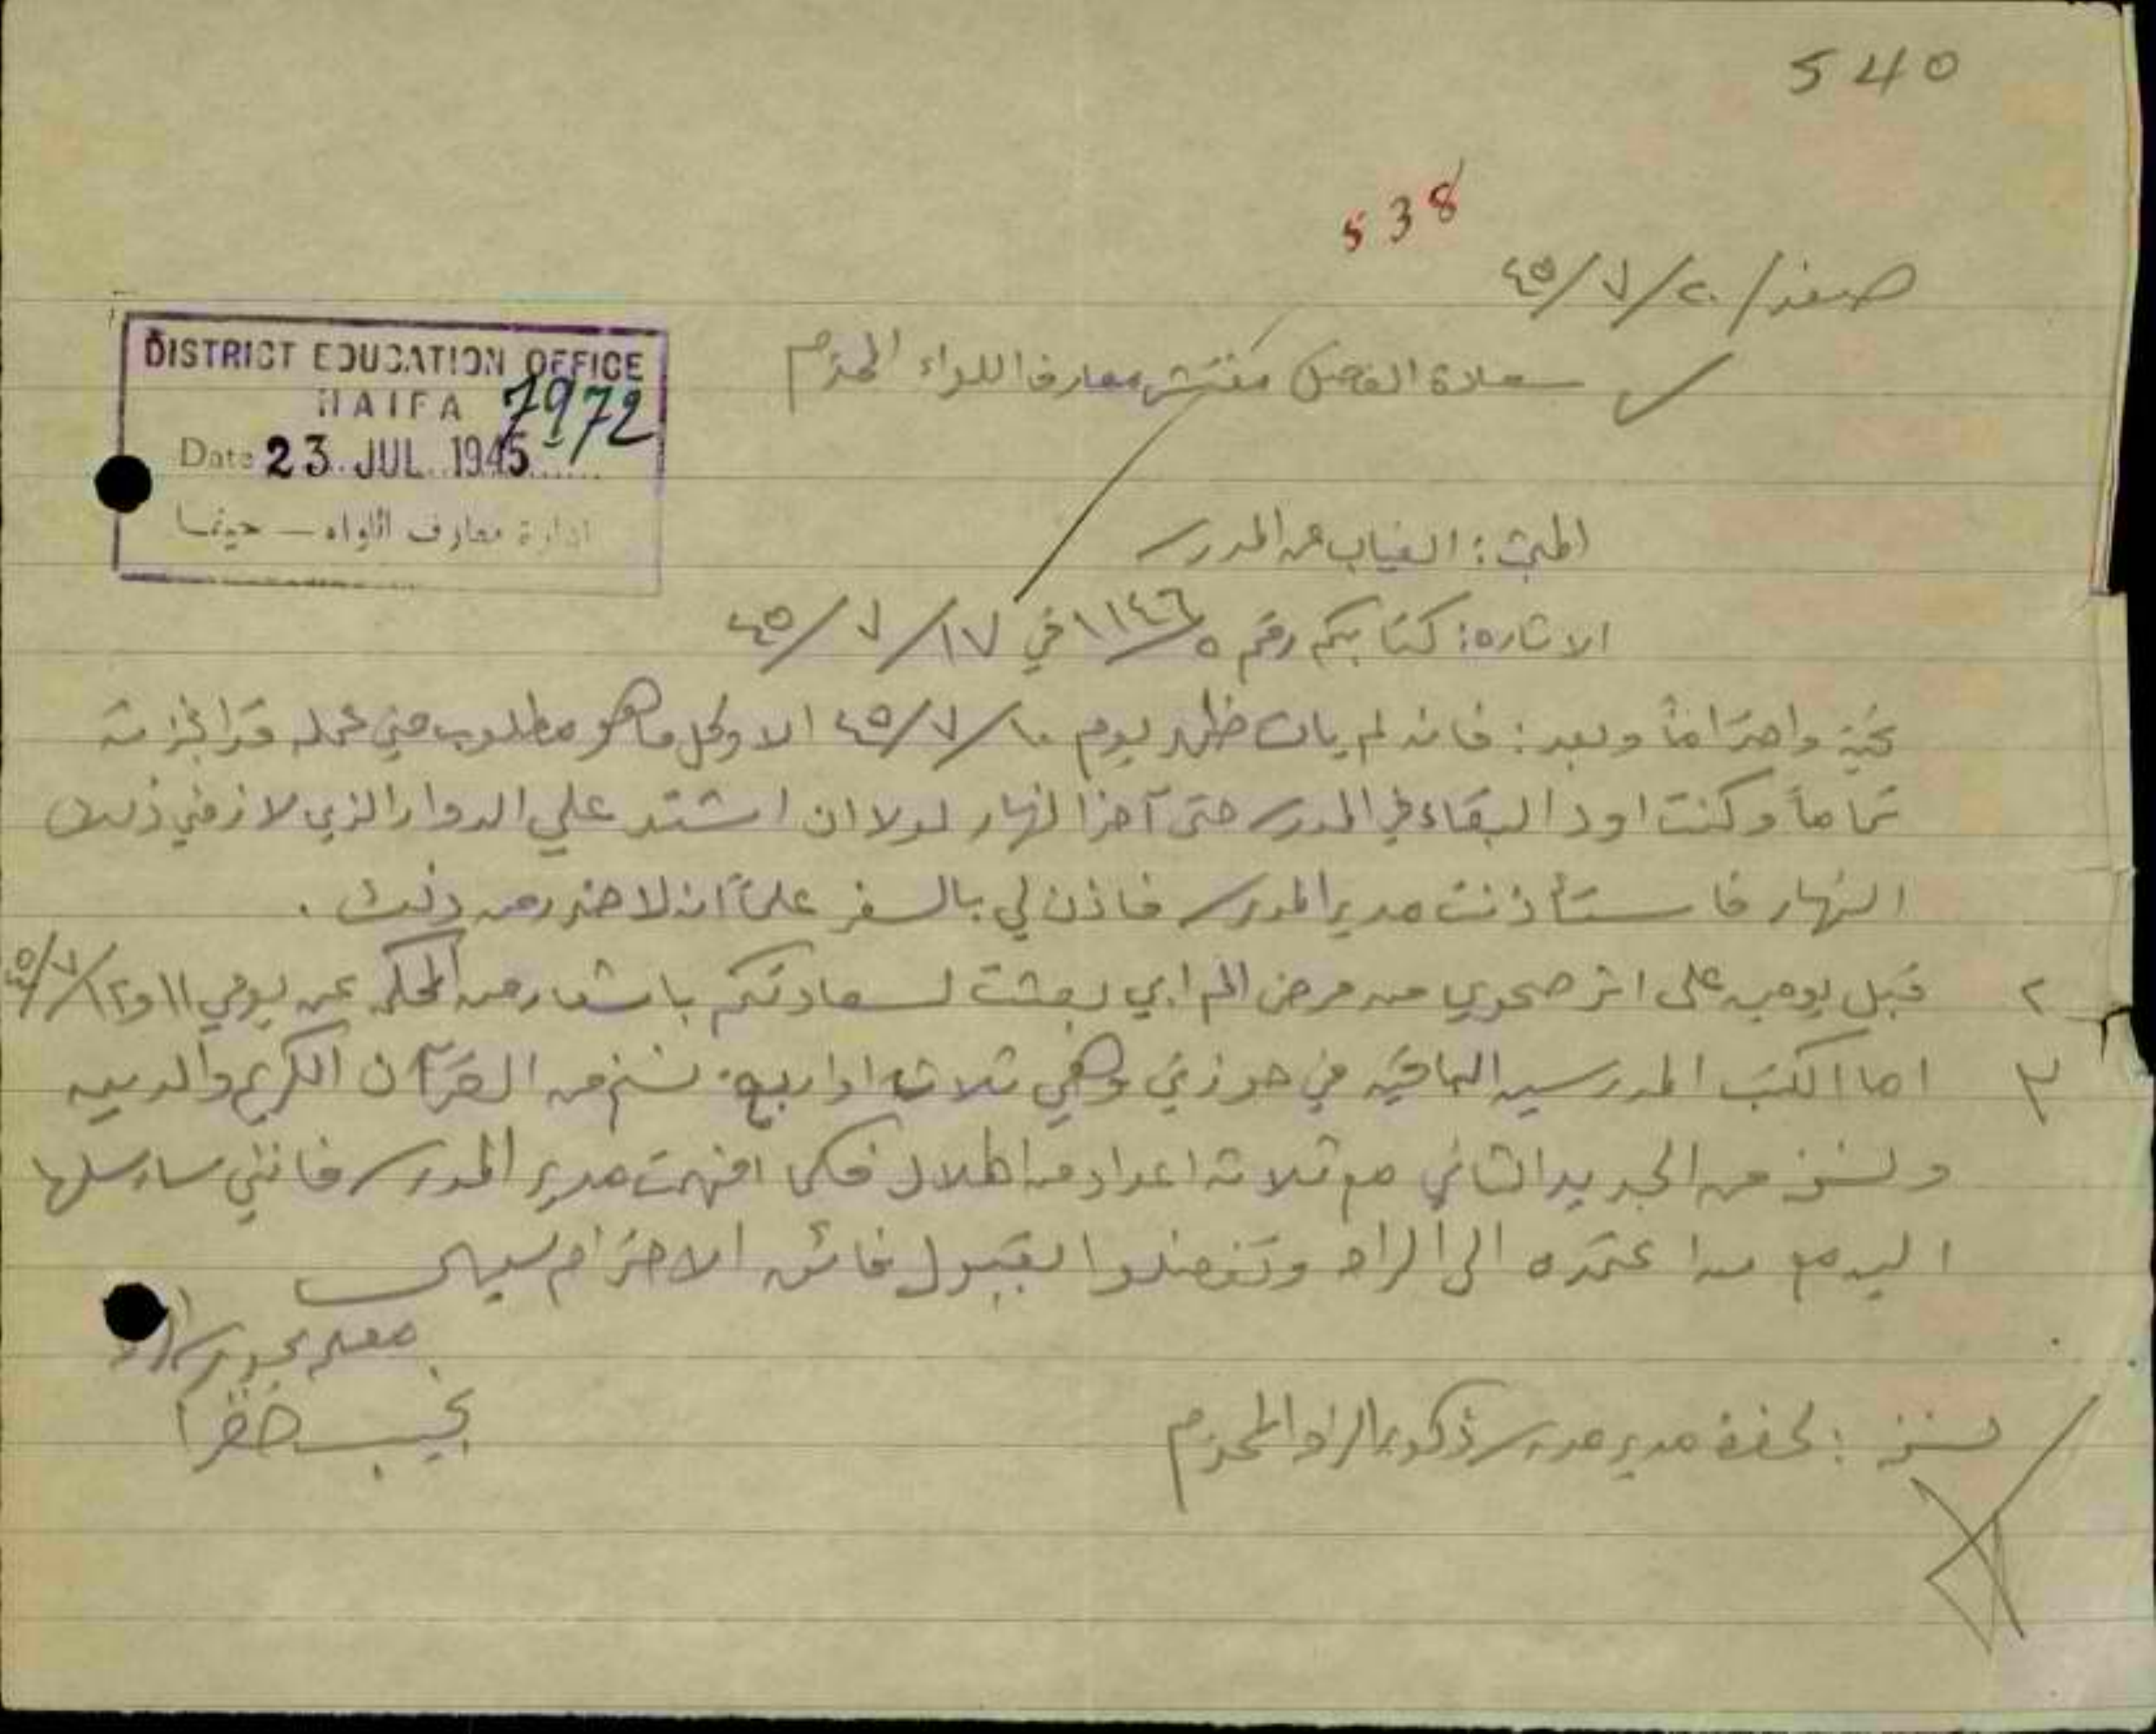 540
538
صفد / ٢٠/٧/٤٥
سعادة الفاضل مفتش معارف اللواء المحترم
DISTRICT EDUCATION OFFICE
HAIFA 7972
Date 23 JUL 1945
ادارة معارف اللواء — حيفا
المبحث : الغياب عن المدرسه
الاشاره : كتابكم رقم ١١٤٦/٥ في ١٧/٧/٤٥
تحية واحتراماً وبعد : فانه لم يأت ظهر يوم ١٠/٧/٤٥ الا وكل ما هو مطلوب مني عمله قد انجزته
تماماً وكنت اود البقاء في المدرسه حتى آخر النهار لولا ان اشتد علي الدوار الذي لازمني ذلك
النهار فاستأذنت مدير المدرسه فاذن لي بالسفر علماً انه لا ضرر من ذلك .
٢ قبل يومين على اثر صحوي من مرض الم بي بعثت لسعادتكم باشعار من الحكمه عن يومي ١١ و١٢/٧/٤٥
٣ اما الكتب المدرسيه الباقيه في حوزتي وهي ثلاث او اربع نسخ من القرآن الكريم والدين
ونسخه من الجديد الثاني مع ثلاثة اعداد من الهلال فكما افهمت مدير المدرسه فانني سارسلها
اليه مع من اعتمده الى الراس وتفضلوا بقبول فائق الاحترام سيدي
معلم بمدرسة
نجيب خفرا
نسخه : لحضرة مدير مدرسة ذكور الراس المحترم